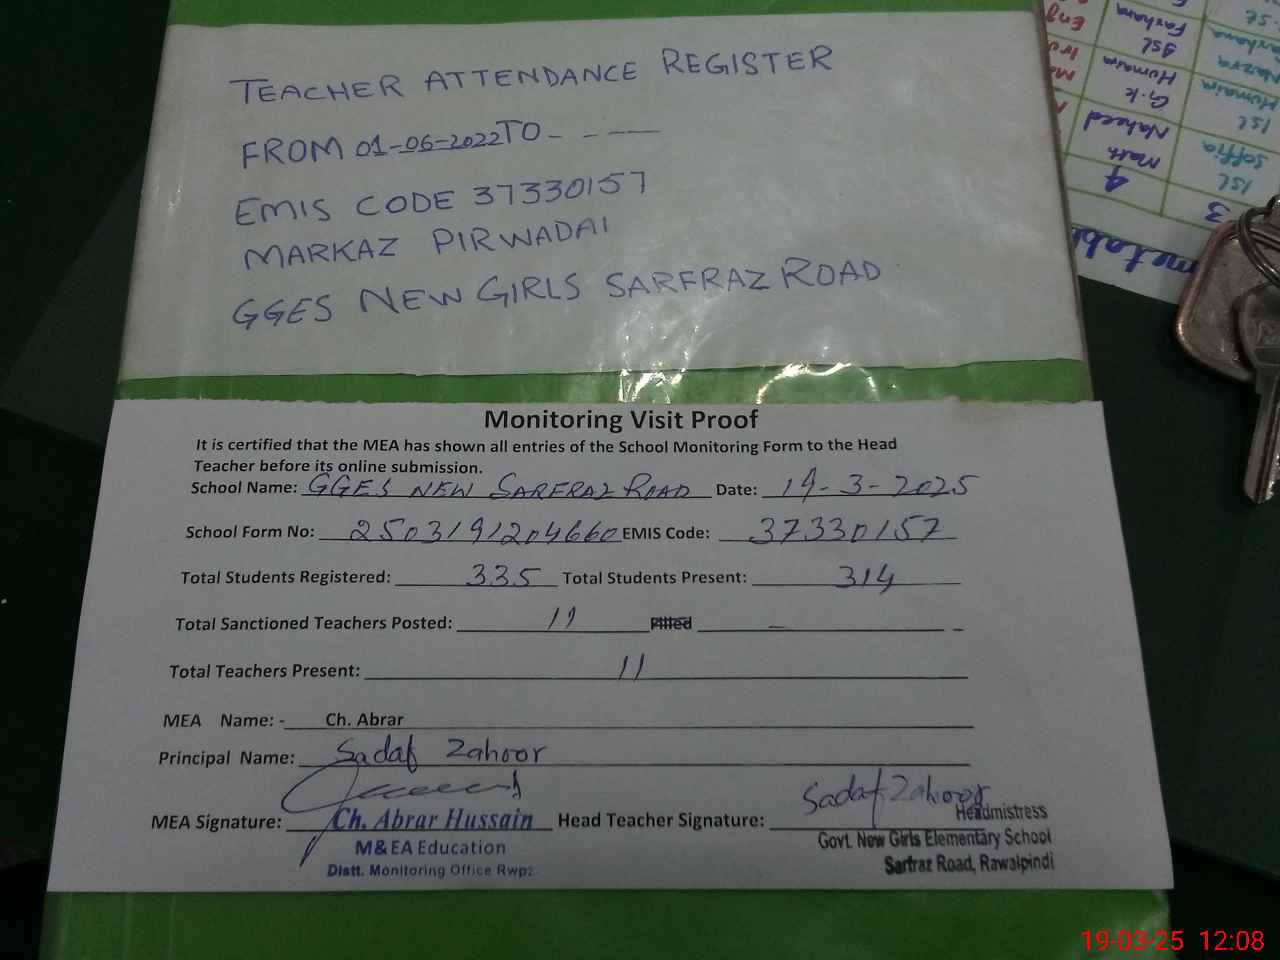 TEACHER ATTENDANCE REGISTER
FROM 01-06-2022 TO - - —
EMIS CODE 37330157
MARKAZ PIRWADAI
GGES NEW GIRLS SARFRAZ ROAD
Monitoring Visit Proof
It is certified that the MEA has shown all entries of the School Monitoring Form to the Head
Teacher before its online submission.
School Name: GGES NEW SARFRAZ ROAD Date: 19-3-2025
School Form No: 2503191204660 EMIS Code: 37330157
Total Students Registered: 335 Total Students Present: 314
Total Sanctioned Teachers Posted: 11 Filled - -
Total Teachers Present: 11
MEA Name: - Ch. Abrar
Principal Name: Sadaf Zahoor
MEA Signature: Ch. Abrar Hussain Head Teacher Signature: Sadaf Zahoor
Headmistress
M&EA Education Govt. New Girls Elementary School
Distt. Monitoring Office Rwp: Sarfraz Road, Rawalpindi
3 4
ISL Math
Soffia Naheed
ISL G.K
Humaira Humaira
Nazra ISL
Farhana Farhana
Eng
19-03-25 12:08